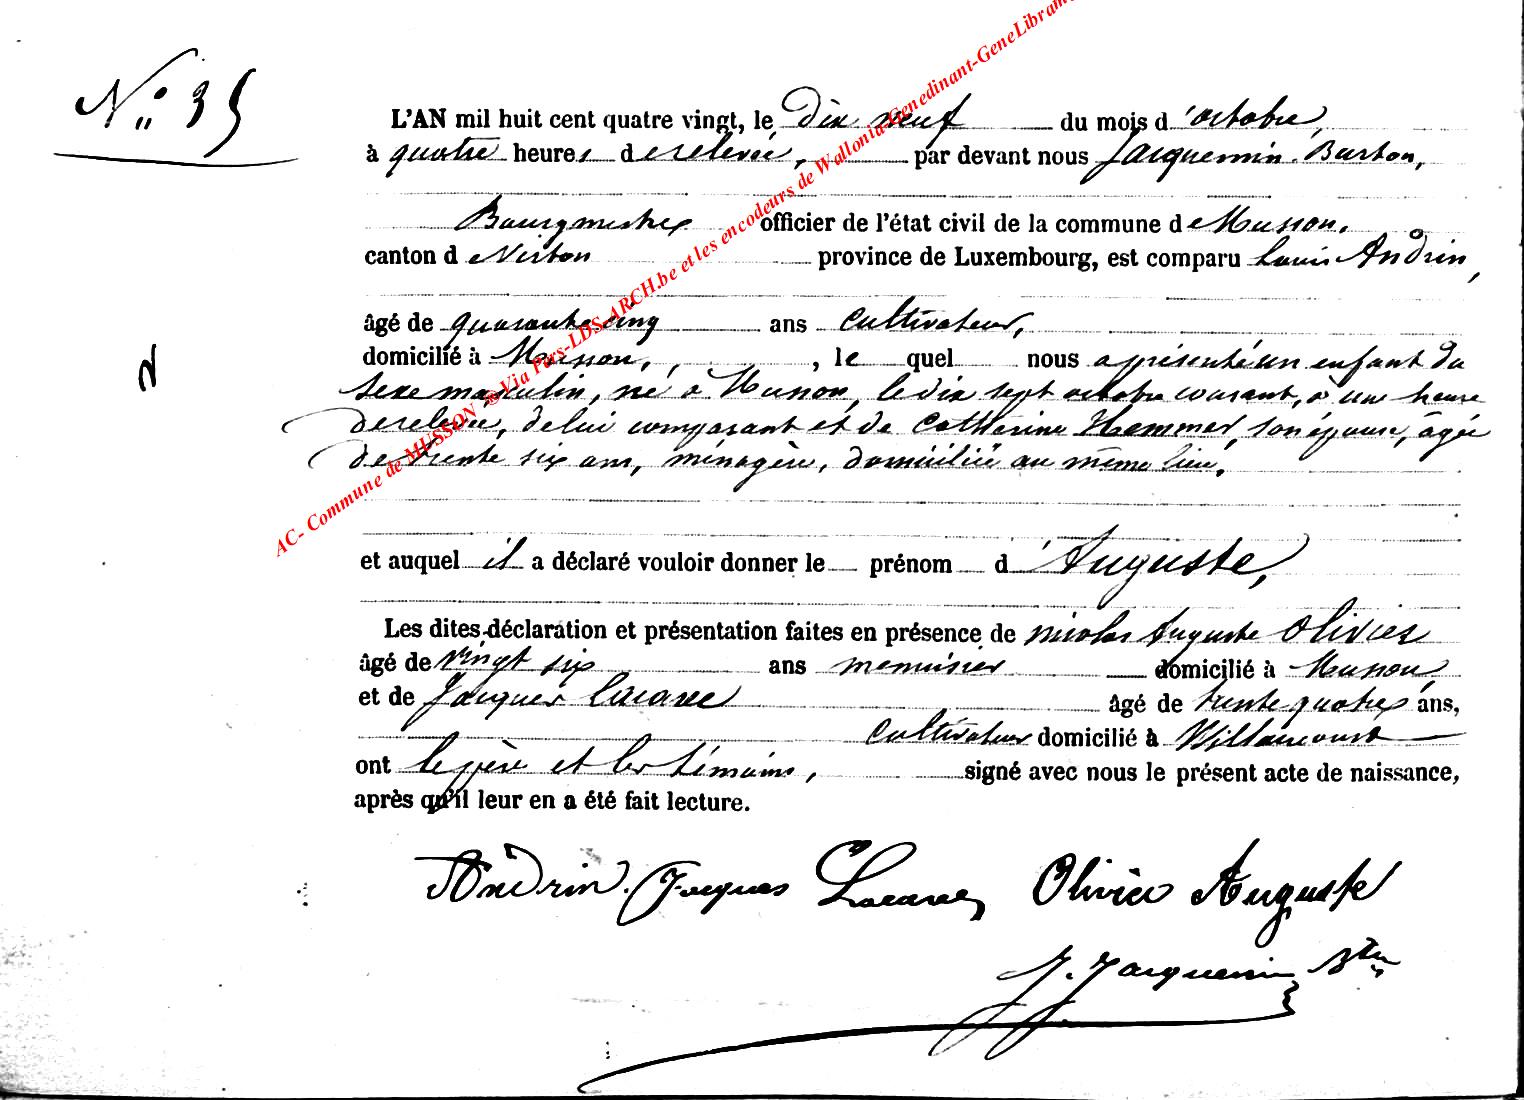 N° 35
L'AN mil huit cent quatre vingt, le dix neuf du mois d'octobre,
à quatre heures de relevée, par devant nous Jacquemin Burton,
Bourgmestre officier de l'état civil de la commune de Musson,
canton de Virton province de Luxembourg, est comparu Louis Andrin,
âgé de quarante cinq ans cultivateur,
domicilié à Musson, , le quel nous a présenté un enfant du
sexe masculin, né à Musson, le dix sept octobre courant, à une heure
de relevée, de lui comparant et de Catherine Hemmer, son épouse, âgée
de trente six ans, ménagère, domiciliée au même lieu,
et auquel il a déclaré vouloir donner le prénom d'Auguste,
Les dites déclaration et présentation faites en présence de Nicolas Auguste Olivier
âgé de vingt six ans menuisier domicilié à Musson,
et de Jacques Lacave âgé de trente quatre ans,
cultivateur domicilié à Willancourt
ont le père et les témoins, signé avec nous le présent acte de naissance,
après qu'il leur en a été fait lecture.
Andrin. Jacques Lacave Olivier Auguste
J. Jacquemin Btn
AC- Commune de MUSSON ® Via Pars-LDS-ARCH.be et les encodeurs de Wallonia-Genedinant-GeneLibram